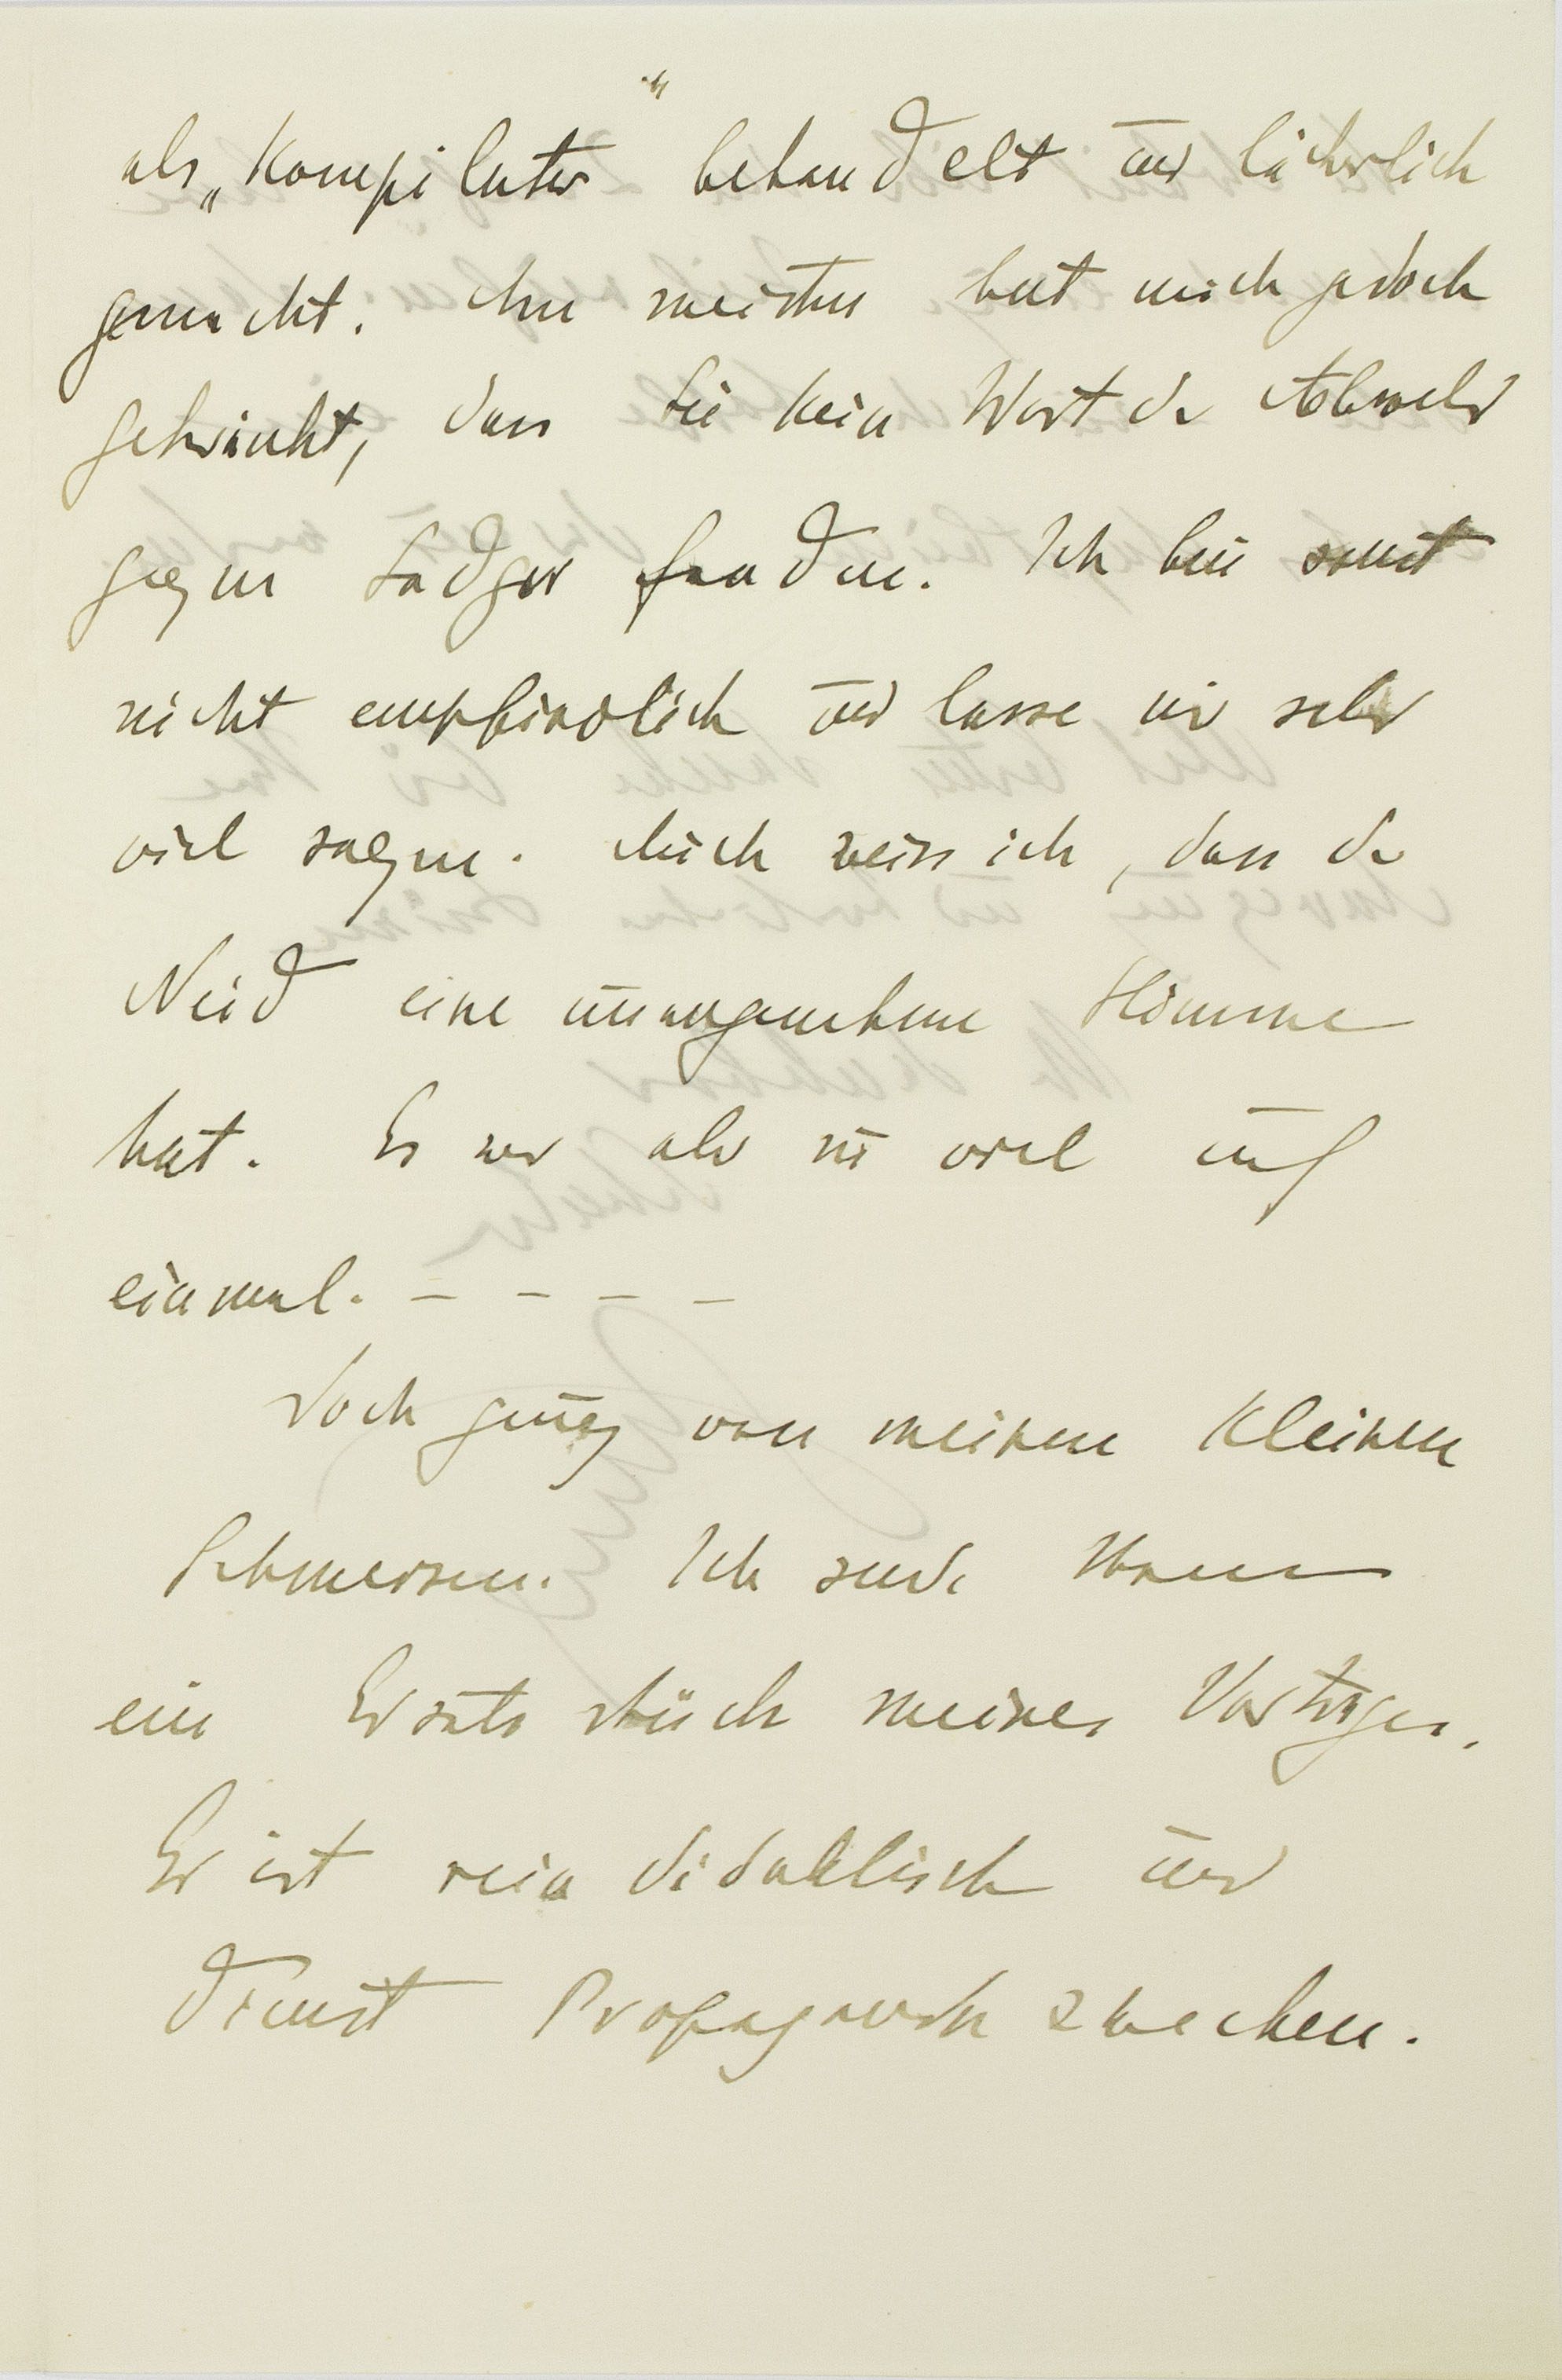 als „Kompilator“ behandelt und lächerlich
gemacht. Am meisten hat mich jedoch
gekränkt, dass Sie kein Wort der Abwehr
gegen Sadger fanden. Ich bin sonst
nicht empfindlich und lasse mir sehr
viel sagen. Auch weiss ich, dass der
Neid eine unangenehme Stimme
hat. Es war aber zu viel auf
einmal. – – – –
Doch genug von meinen kleinen
Schmerzen. Ich sende Ihnen
ein Ersatzstück meines Vortrages.
Er ist rein didaktisch und
dient Propagandazwecken.